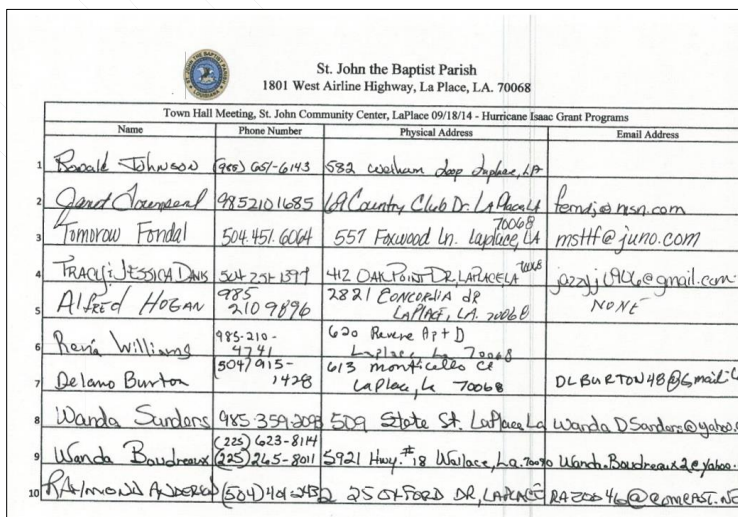 St. John the Baptist Parish
1801 West Airline Highway, La Place, LA. 70068
Town Hall Meeting, St. John Community Center, LaPlace 09/18/14 - Hurricane Isaac Grant Programs
Name Phone Number Physical Address Email Address
1 Ronald Johnson (985) 651-6143 582 Welham Loop Laplace, LA
2 Janet Townsend 9852101685 Country Club Dr. LaPlace LA @msn.com
70068
3 Tomorow Fondal 504.451.6064 557 Foxwood Ln. Laplace, LA mstff@juno.com
4 TRACY & JESSICA DAVIS 504-251-1377 412 OAK POINT DR, LAPLACE LA 70068 @gmail.com
5 Alfred HOGAN 985 210 9896 2821 CONCORDIA dR LAPLACE, LA. 70068 NONE
6 Williams 985-210-4741 620 Revere Apt D Laplace La 70068
7 Delano Burton (504) 915-1428 613 monticello Ct LaPlace, La 70068 DLBURTON48@Gmail.
8 Wanda Sanders 985-359-2098 509 State St. LaPlace La WandaDSanders@yahoo.
9 Wanda Boudreaux (225) 623-8114 (225) 265-8011 5921 Hwy. #18 Wallace, La. 70090 Wanda.Boudreaux2@yahoo.
10 RAYMOND ANDERSON (504) 401-2432 25 OXFORD DR, LAPLACE RAZOO46@COMCAST.NE